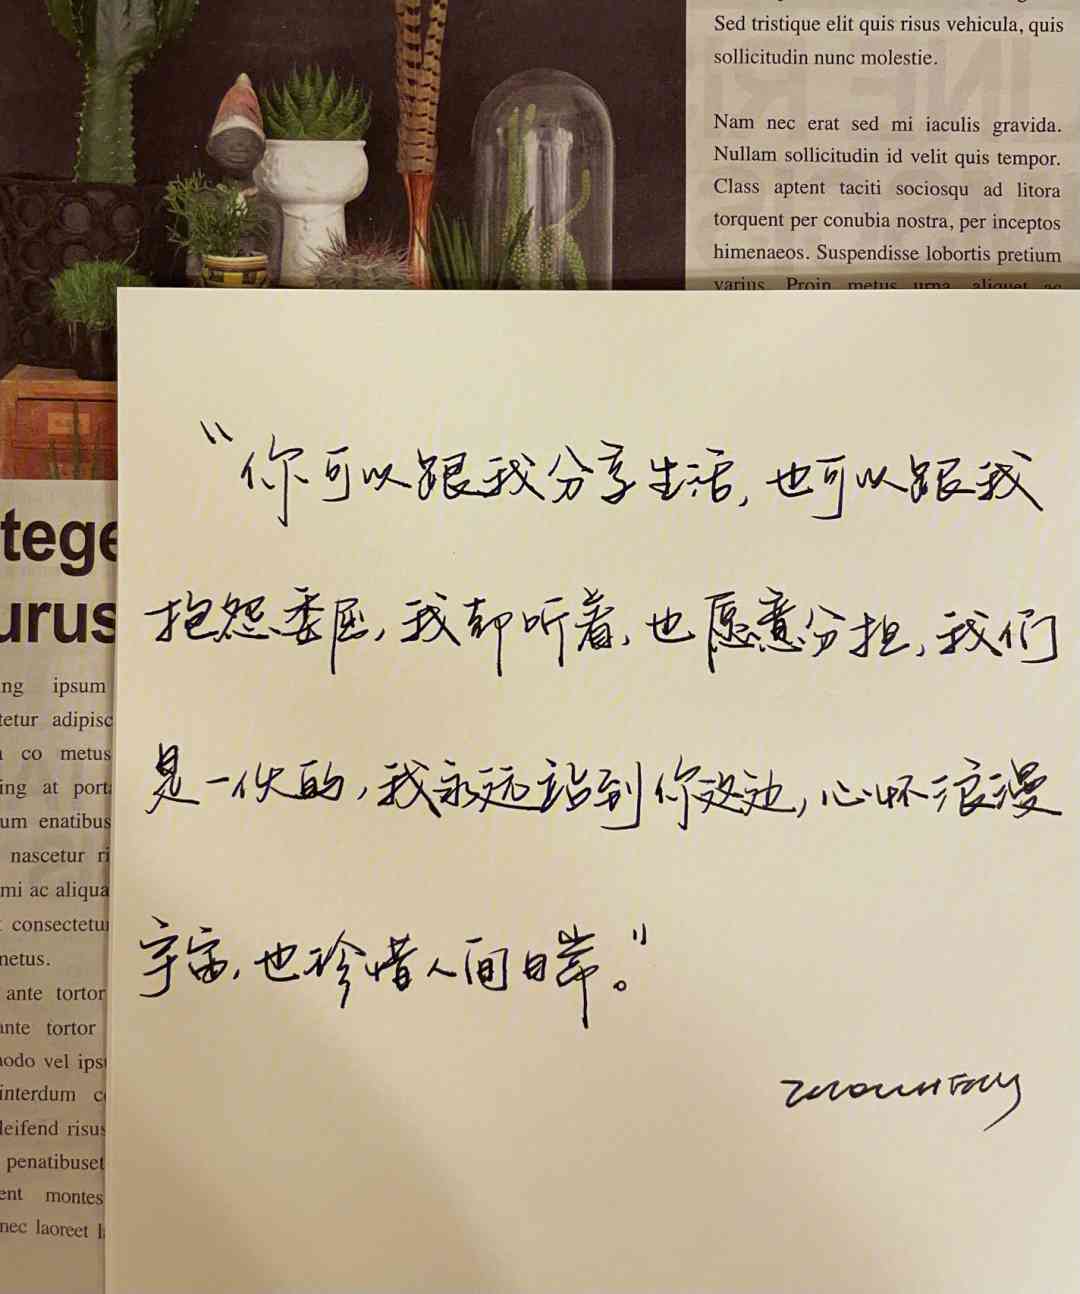 Sed tristique elit quis risus vehicula, quis
sollicitudin nunc molestie.
Nam nec erat sed mi iaculis gravida.
Nullam sollicitudin id velit quis tempor.
Class aptent taciti sociosqu ad litora
torquent per conubia nostra, per inceptos
himenaeos. Suspendisse lobortis pretium
varius. Proin metus urna, aliquet ac
“你可以跟我分享生活,也可以跟我
抱怨委屈,我都听着,也愿意分担,我们
是一伙的,我永远站到你这边,心怀浪漫
宇宙,也珍惜人间日常。”
tege
urus
ng ipsum
tetur adipisc
co metus
ing at port
um enatibus
nascetur ri
mi ac aliqua
consectetu
metus.
ante tortor
ante tortor
modo vel ips
interdum c
leifend risus
penatibuset
ent montes
nec laoreet l